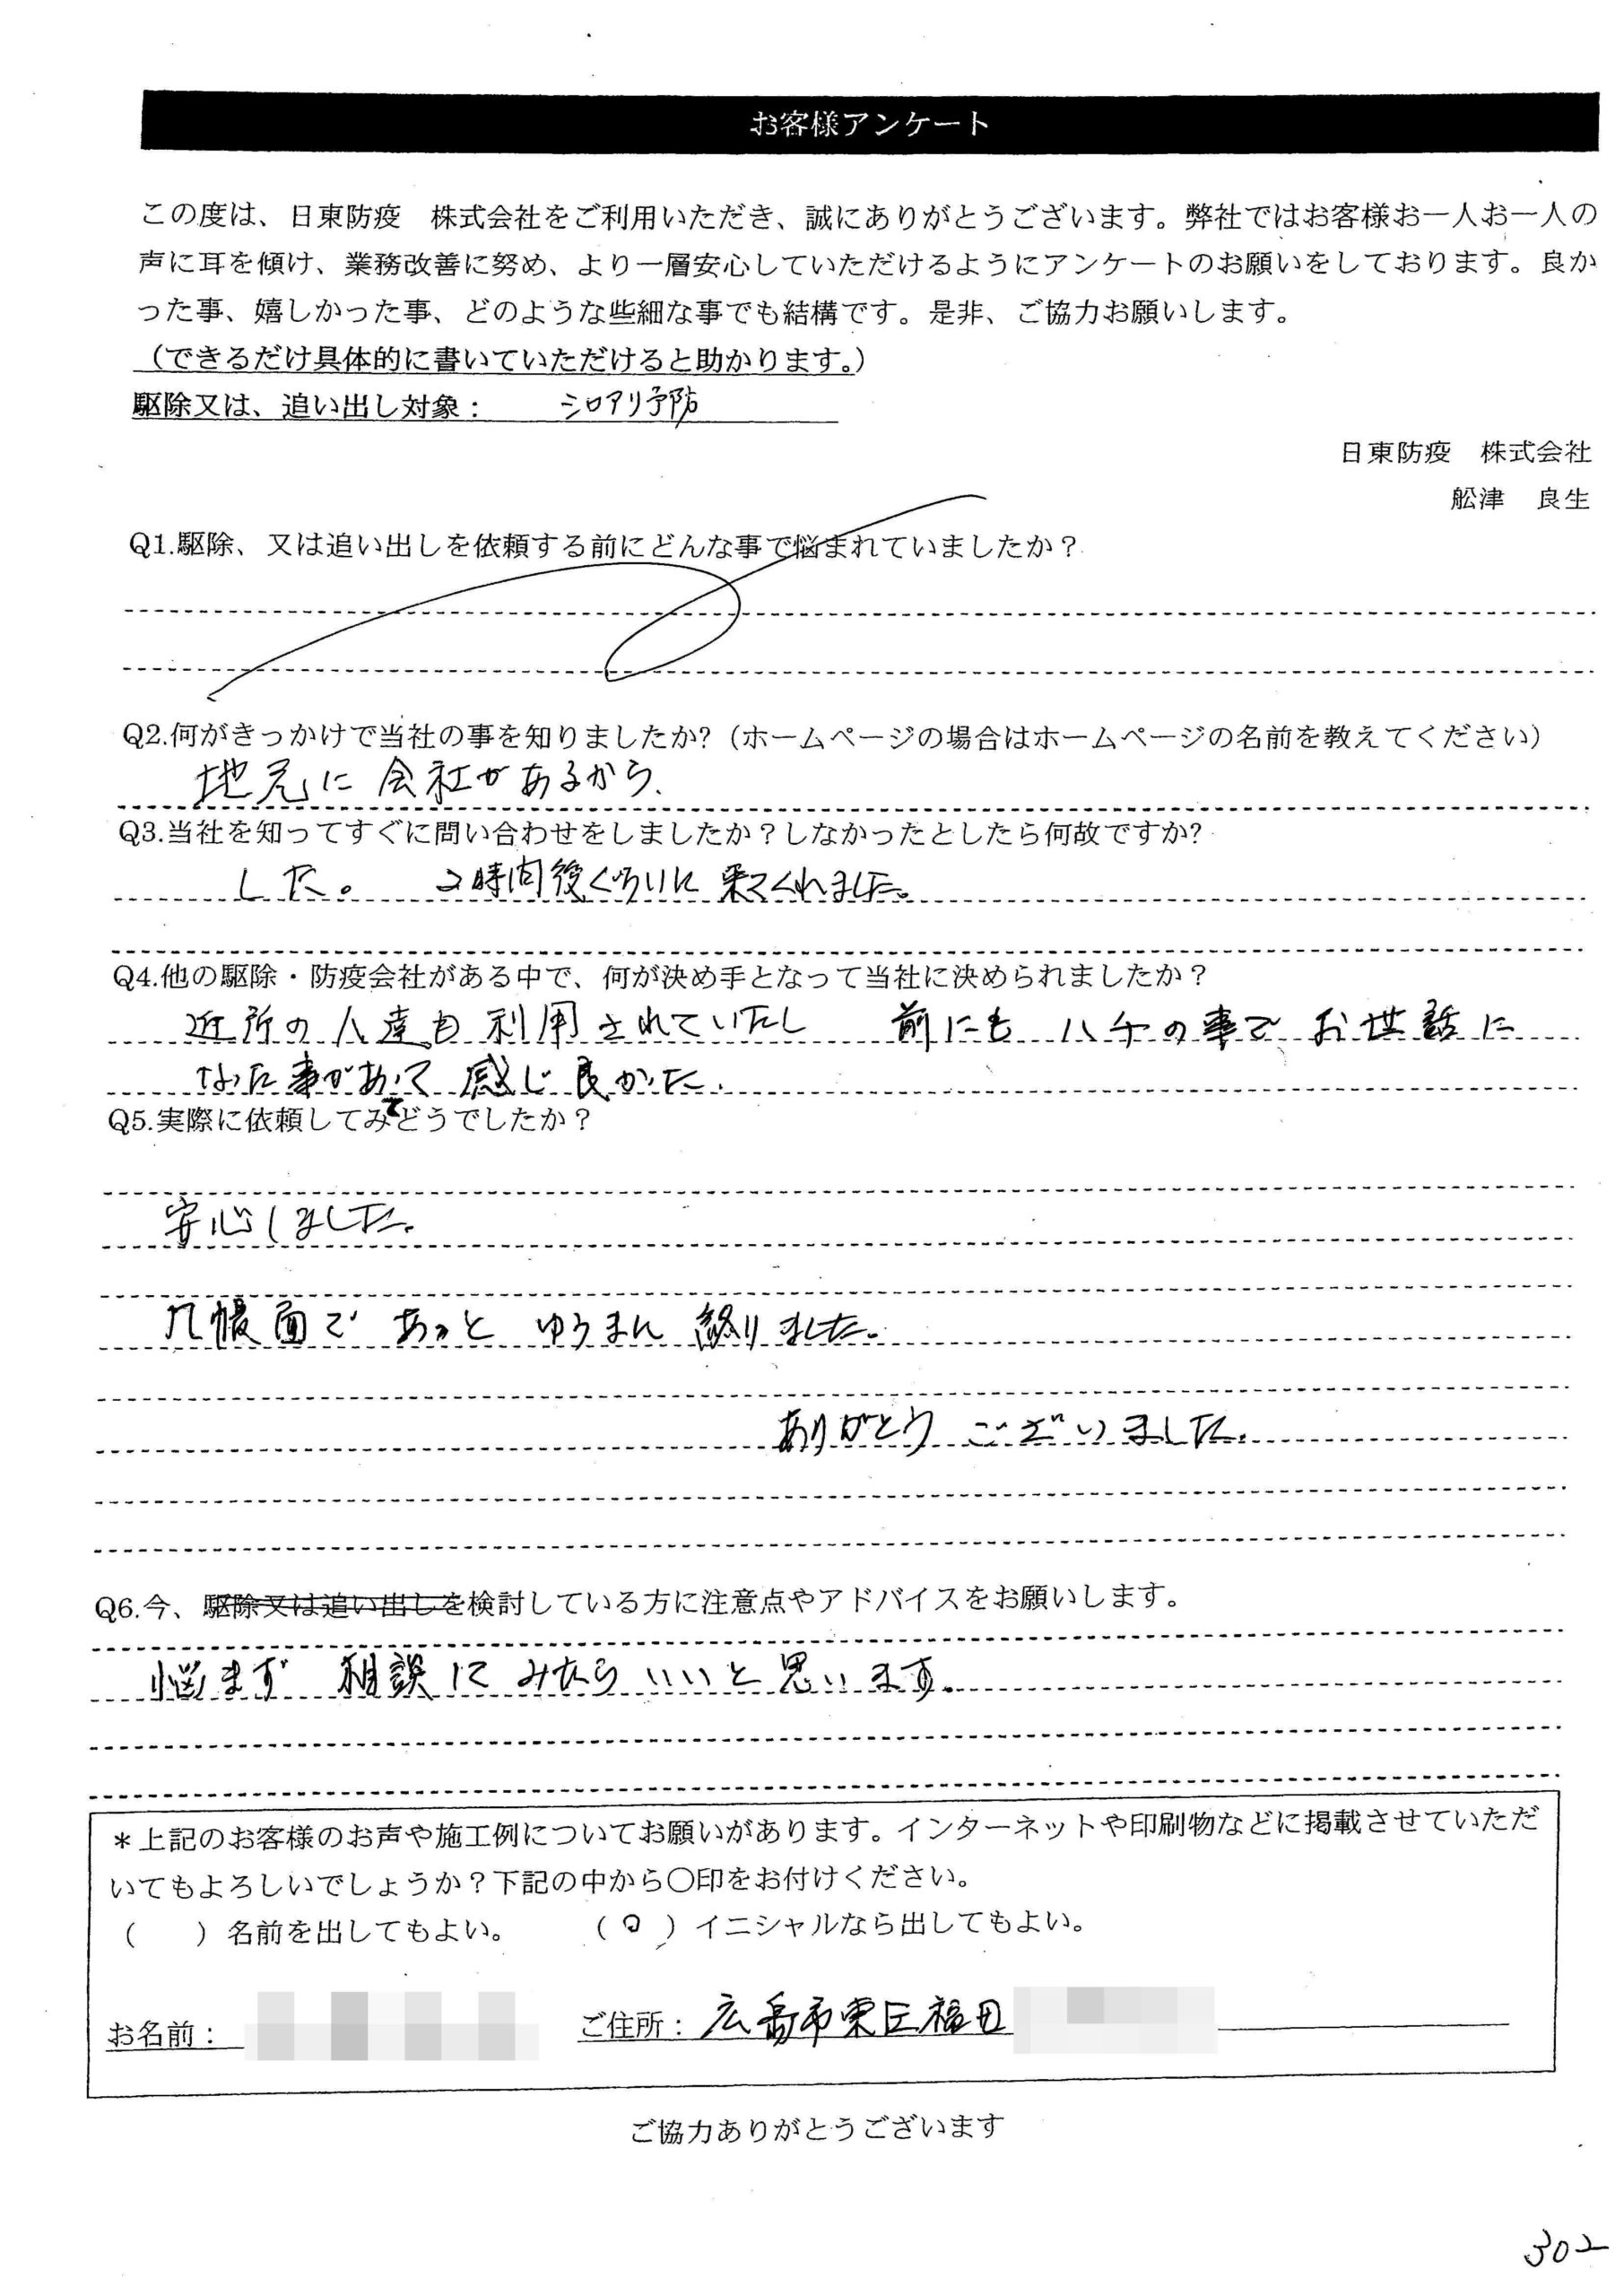 お客様アンケート
この度は、日東防疫　株式会社をご利用いただき、誠にありがとうございます。弊社ではお客様お一人お一人の
声に耳を傾け、業務改善に努め、より一層安心していただけるようにアンケートのお願いをしております。良か
った事、嬉しかった事、どのような些細な事でも結構です。是非、ご協力お願いします。
（できるだけ具体的に書いていただけると助かります。）
駆除又は、追い出し対象：　シロアリ予防
日東防疫　株式会社
舩津　良生
Q1.駆除、又は追い出しを依頼する前にどんな事で悩まれていましたか？
Q2.何がきっかけで当社の事を知りましたか？（ホームページの場合はホームページの名前を教えてください）
地元に会社があるから、
Q3.当社を知ってすぐに問い合わせをしましたか？しなかったとしたら何故ですか？
した。　2時間後ぐらいに来てくれました。
Q4.他の駆除・防疫会社がある中で、何が決め手となって当社に決められましたか？
近所の人達も利用されていたし　前にもハチの事でお世話に
なった事があって感じ良かった.
Q5.実際に依頼してみてどうでしたか？
安心しました。
几帳面で あっと ゆうまん 終りました。
ありがとう ございました.
Q6.今、駆除又は追い出しを検討している方に注意点やアドバイスをお願いします。
悩まず 相談してみたらいいと思います。
＊上記のお客様のお声や施工例についてお願いがあります。インターネットや印刷物などに掲載させていただ
いてもよろしいでしょうか？下記の中から〇印をお付けください。
（　　）名前を出してもよい。　（○）イニシャルなら出してもよい。
お名前：　ご住所：広島市東区福田
ご協力ありがとうございます
302